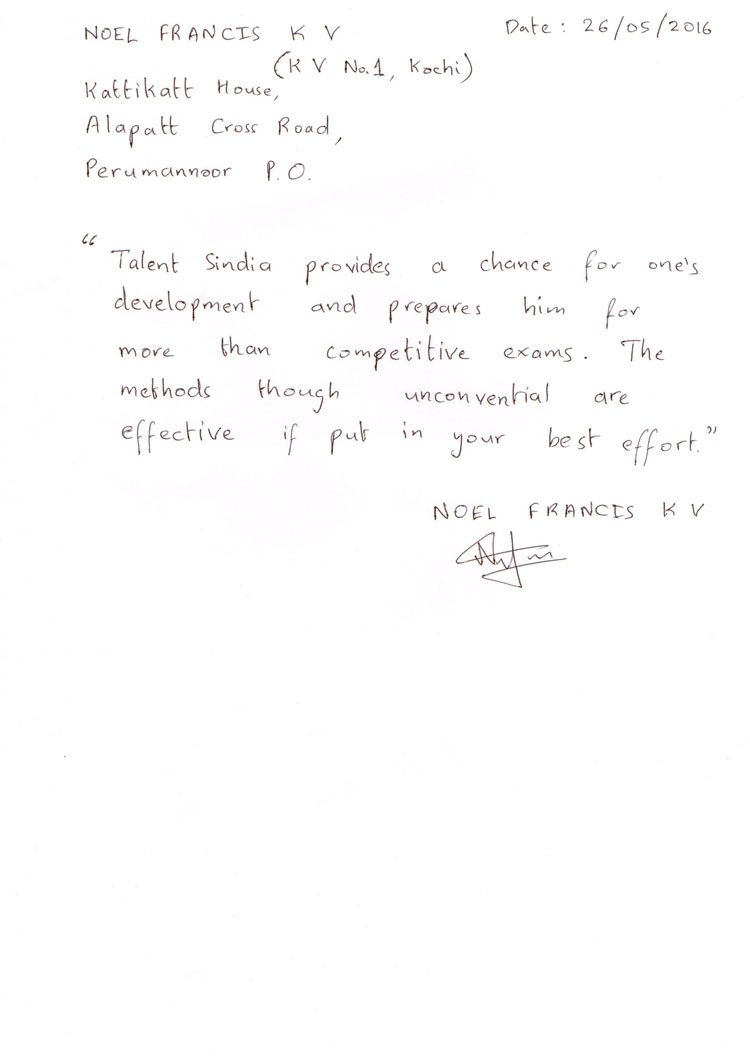 NOEL FRANCIS K V
Date : 26/05/2016
(K V No.1, Kochi)
Kattikatt House,
Alapatt Cross Road,
Perumannoor P.O.
“
Talent Sindia provides a chance for one's
development and prepares him for
more than competitive exams. The
methods though unconvential are
effective if put in your best effort.”
NOEL FRANCIS K V